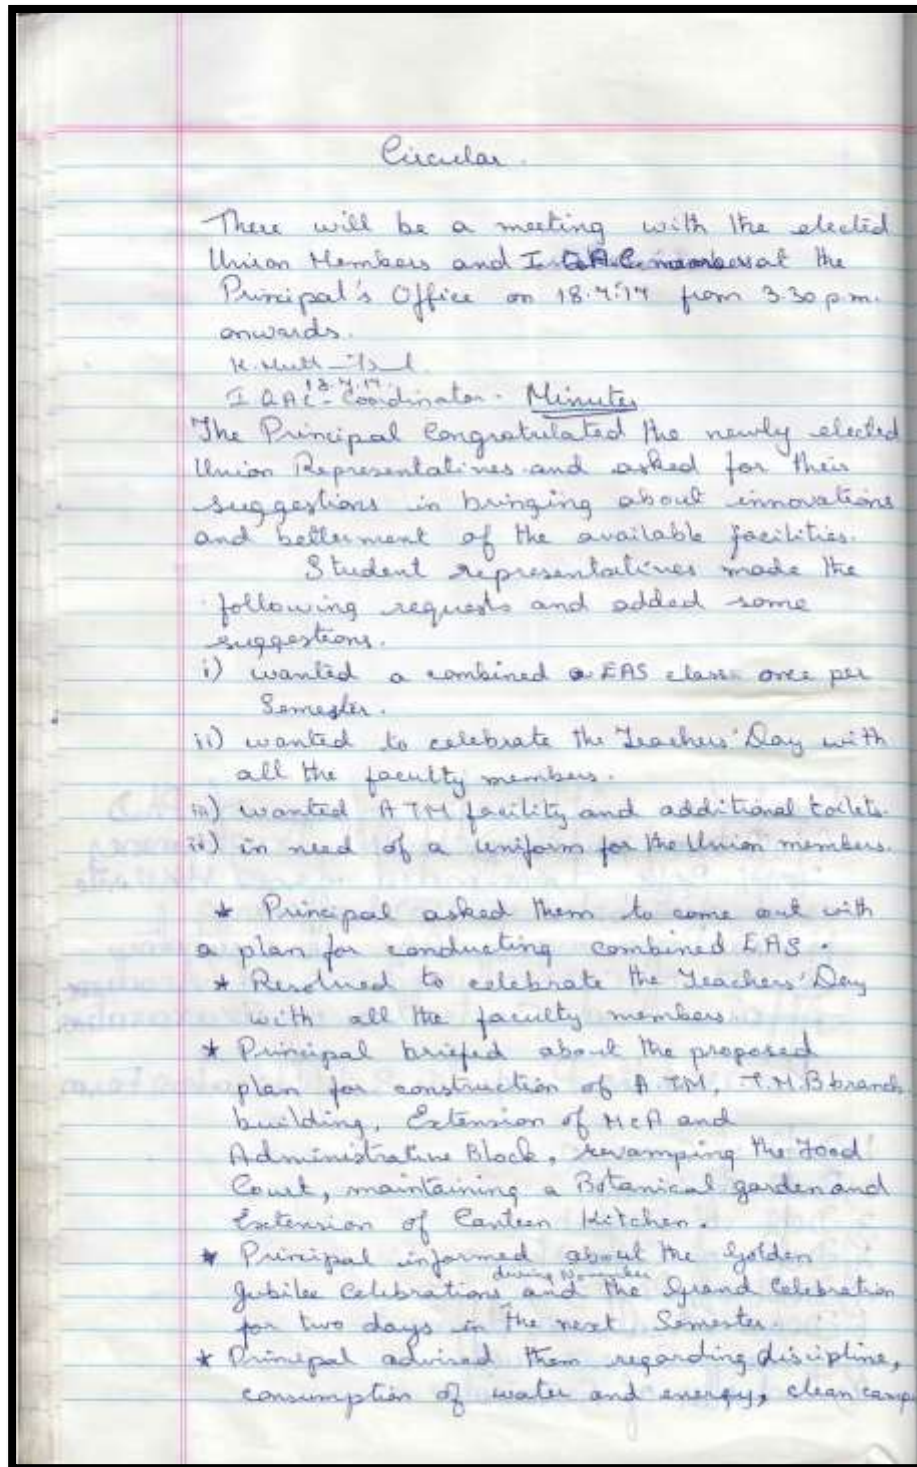 Circular.
There will be a meeting with the elected
Union Members and IQAC members at the
Principal's Office on 18.7.17 from 3.30 p.m.
onwards.
K.
18.7.17
IQAC - Coordinator. Minutes
The Principal Congratulated the newly elected
Union Representatives and asked for their
suggestions in bringing about innovations
and betterment of the available facilities.
Student representatives made the
following requests and added some
suggestions.
i) wanted a combined EAS class once per
Semester.
ii) wanted to celebrate the Teachers' Day with
all the faculty members.
iii) wanted ATM facility and additional toilets.
iv) in need of a uniform for the Union members.
* Principal asked them to come out with
a plan for conducting combined EAS.
* Resolved to celebrate the Teachers' Day
with all the faculty members.
* Principal briefed about the proposed
plan for construction of ATM, T.M.B branch
building, Extension of MCA and
Administrative Block, revamping the Food
Court, maintaining a Botanical garden and
Extension of Canteen Kitchen.
* Principal informed about the Golden
during November
Jubilee Celebrations and the Grand Celebration
for two days in the next Semester.
* Principal advised them regarding discipline,
consumption of water and energy, clean